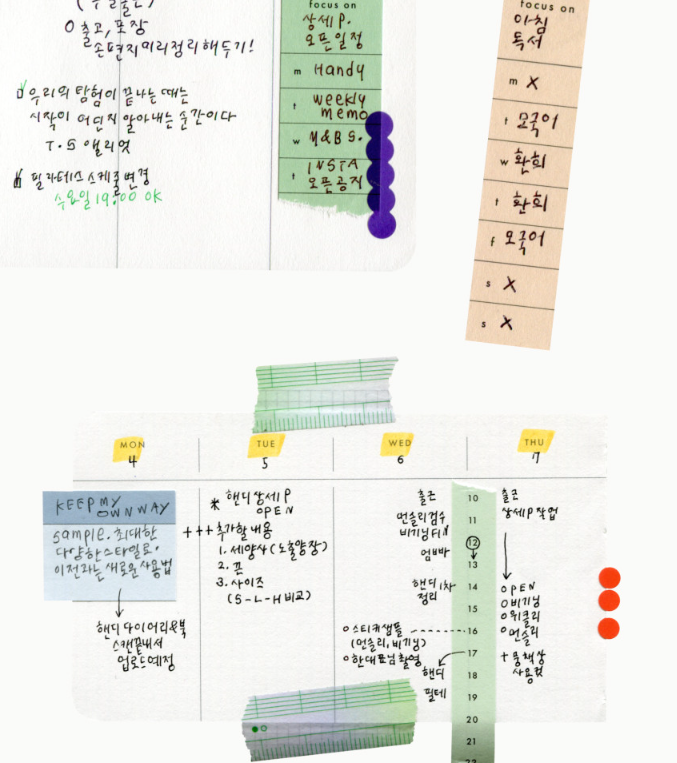 O 출고, 포장
손편지 미리 정리해두기!
우리의 탐험이 끝나는 때는
시작이 어딘지 알아내는 순간이다
T.S 앨리엇
필라테스 스케줄 변경
수요일 19:00 OK
focus on
상세 P.
오픈일정
m Handy
t weekly
memo
w M&B S.
t INSTA
오픈공지
focus on
아침
독서
m X
t 모국어
w 환희
t 환희
f 모국어
s X
s X
MON
4
KEEP MY
OWN WAY
sample. 최대한
다양한 스타일로.
이전과는 새로운 사용법
핸디 다이어리&북
스캔 끝내서
업로드 예정
TUE
5
* 핸디 상세 P
OPEN
+++ 추가할 내용
1. 세양사 (노출양장)
2. 끈
3. 사이즈
(S-L-H 비교)
WED
6
출근
먼슬리 검수
비기닝 FIX
엄빠
핸디 1차
정리
o 스티커 샘플
(먼슬리, 비기닝)
o 한대표님 촬영
핸디
필테
10
11
12
13
14
15
16
17
18
19
20
21
22
THU
7
출근
상세 P 작업
O OPEN
O 비기닝
O 위클리
O 먼슬리
+ 몽책상
사용컷